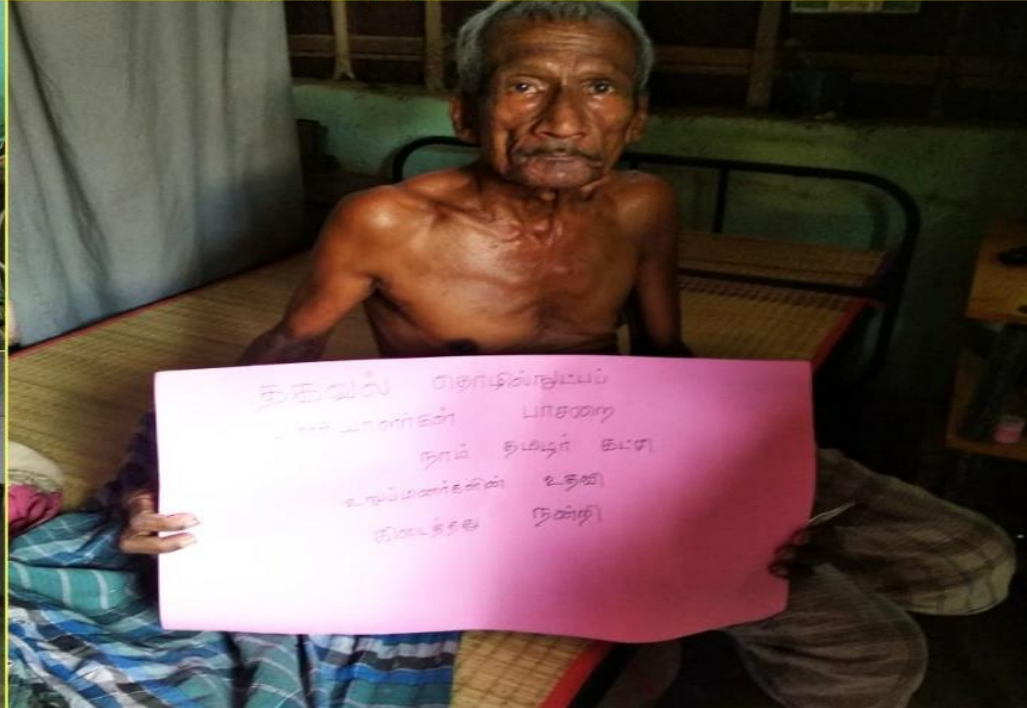 தகவல் தொழில்நுட்பப்
பாசறை
நாம் தமிழர் கட்சி
உறுப்பினர்களின் உதவி
கிடைத்தது நன்றி